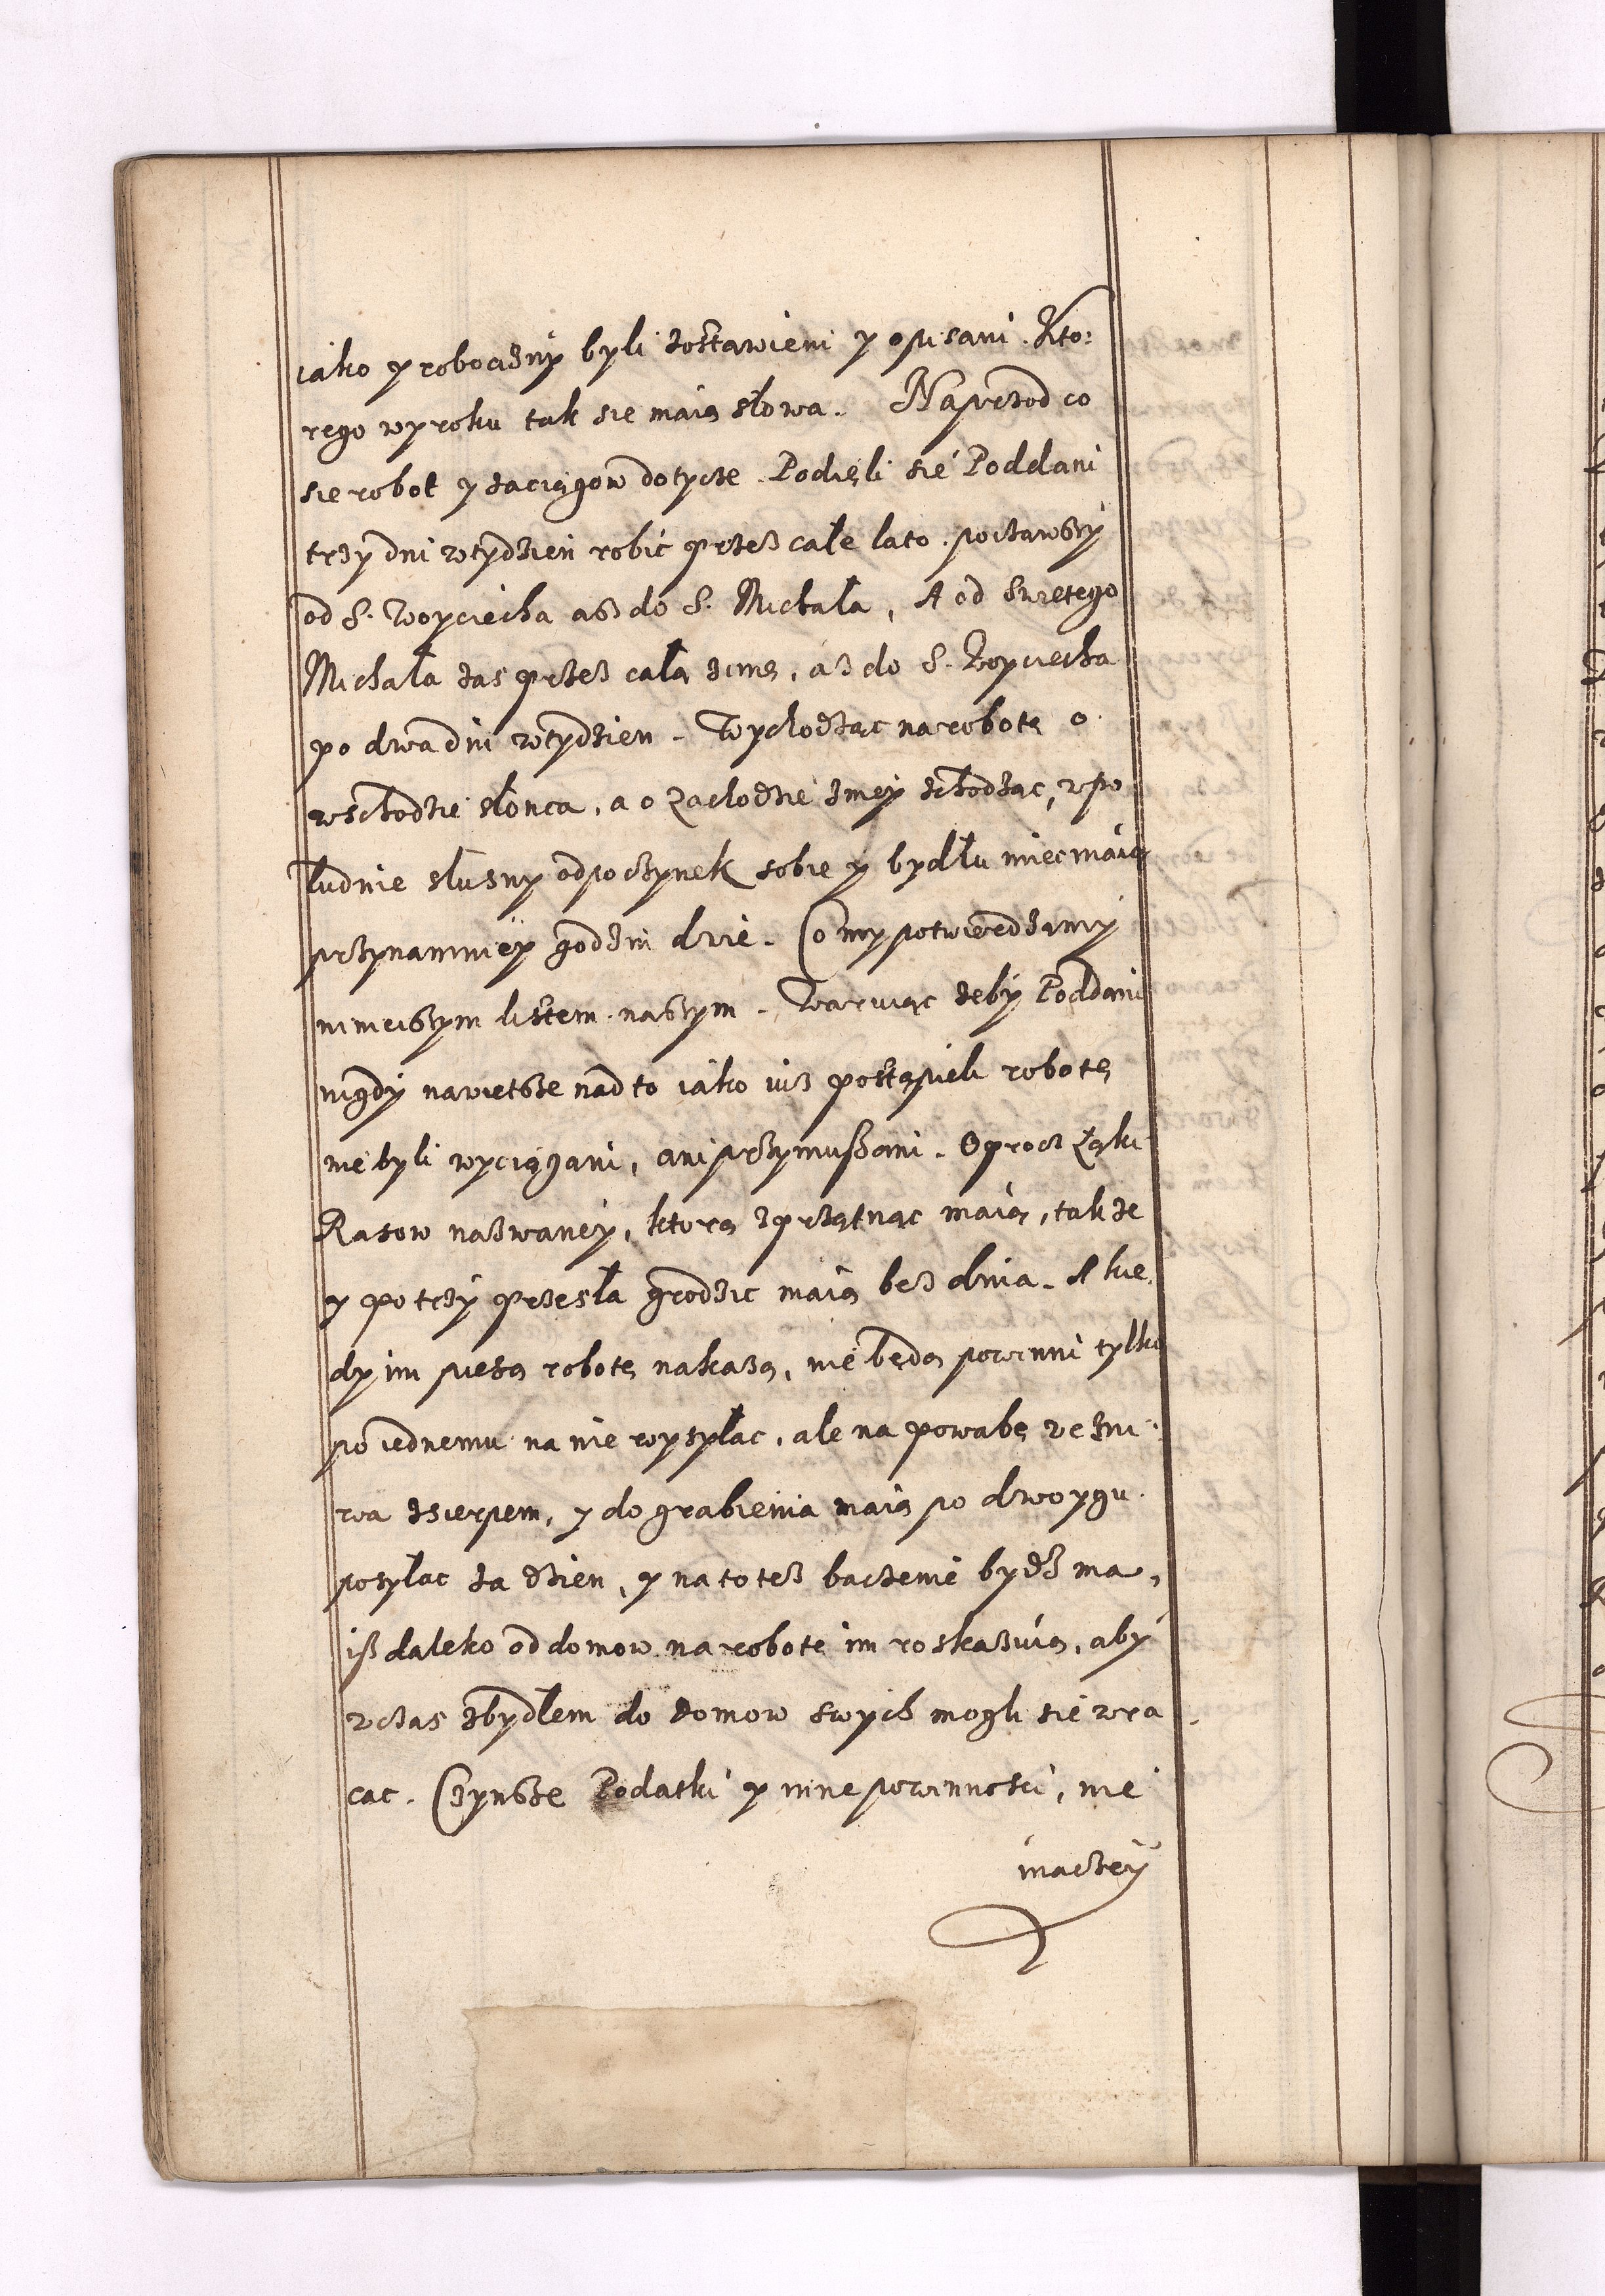 iako y robocizny byli zostawieni y opisani. Kto:
rego wyroku tak sie maią słowa. Naprzod co
sie robot y zaciągow dotycze. Podięli sie Poddani
trzy dni wtydzien robic przez całe lato. począwszy
od S. Woyciecha asz do S. Michała, A od Swietego
Michała zas przez całą zimę, asz do S. Woyciecha
po dwa dni wtydzien. Wychodząc na robotę o
wschodzie słonca, a o Zachodzie zniey schodząc, wpo
łudnie słuszny odpoczynek sobie y bydłu miec maią
przynamniey godzin dwie. Co my potwierdzamy
ninieiszym listem naszym. Waruiąc zeby Poddani
nigdy nawietsze nad to iako iusz postąpieli robotę
nie byli wyciągani, ani przymuszani. Oprocz Łąki
Ratow nazwaney, ktorą zprzątnąc maią, tak ze
y potrzy przesła grodzic maią bez dnia. A kie,
dy im pieszą robotę nakazą, nie będą powinni tylko
po iednemu na nie wysyłac, ale na powabę w zni:
wa zsierpem, y do grabienia maią po dwoygu
posyłac za dzien, y na to tesz baczenie bydz ma,
isz daleko od domow na robote im roskazuią, aby
wczas zbydłem do domow swych mogli sie wra
cac. Czynsze Podatki y inne powinnosci, nie
inaczey